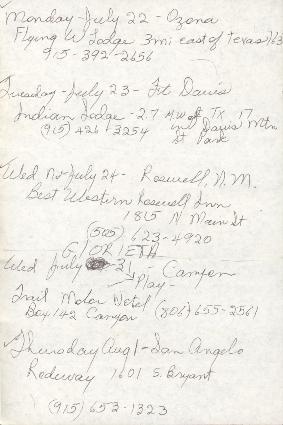 Monday - July 22 - Ozona
Flying W Lodge 3 mi east of Texas 163
915-392-2656
Tuesday - July 23 - Ft Davis
Indian Lodge - 2.7 M W of TX 17
(915) 426 3254 in Davis Mtn
St Park
Wed July 24 - Roswell, N.M.
Best Western Roswell Inn
1815 N Main St
(505) 623-4920
GLORIETA
Wed July 31 Canyon
Play -
Trail Motor Hotel (806) 655-2561
Box 142 Canyon
Thursday Aug 1 - San Angelo
Rodeway 1601 S. Bryant
(915) 653-1323